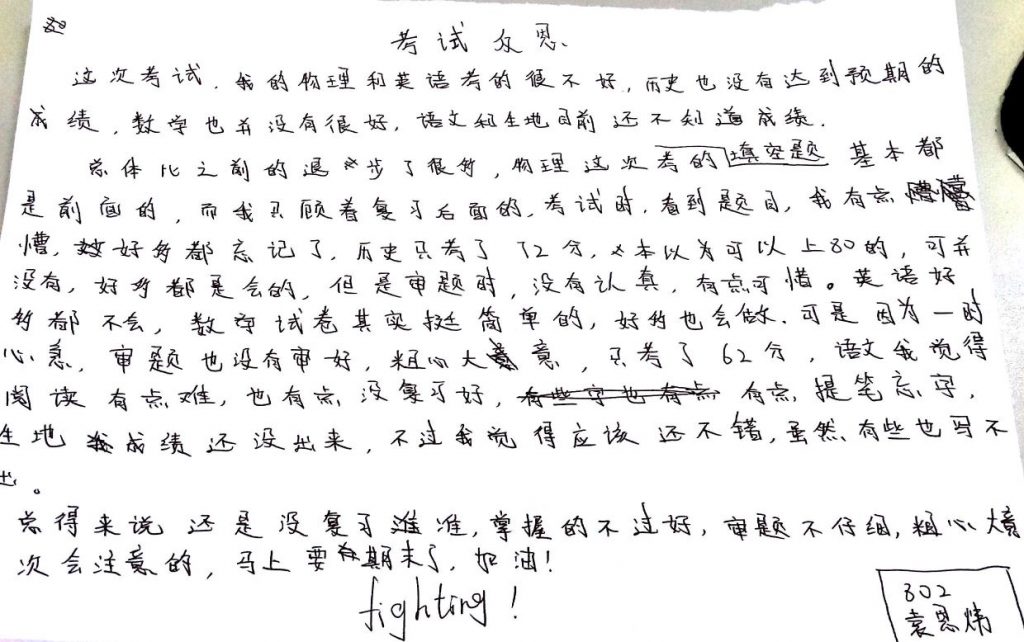 考试反思
这次考试，我的物理和英语考的很不好，历史也没有达到预期的
成绩，数学也并没有很好，语文和生地目前还不知道成绩.
总体比之前的退步了很多，物理这次考的填空题基本都
是前面的，而我只顾着复习后面的，考试时，看到题目，我有点懵
懵，好多都忘记了，历史只考了72分，本以为可以上80的，可并
没有，好多都是会的，但是审题时，没有认真，有点可惜。英语好
多都不会，数学试卷其实挺简单的，好多也会做.可是因为一时
心急，审题也没有审好，粗心大意，只考了62分，语文我觉得
阅读有点难，也有点没复习好，有点提笔忘字，
生地成绩还没出来，不过我觉得应该还不错，虽然有些也写不
出。
总得来说还是没复习准，掌握的不过好，审题不仔细，粗心大意
次会注意的，马上要期末了，加油！
fighting！
802
袁恩炜